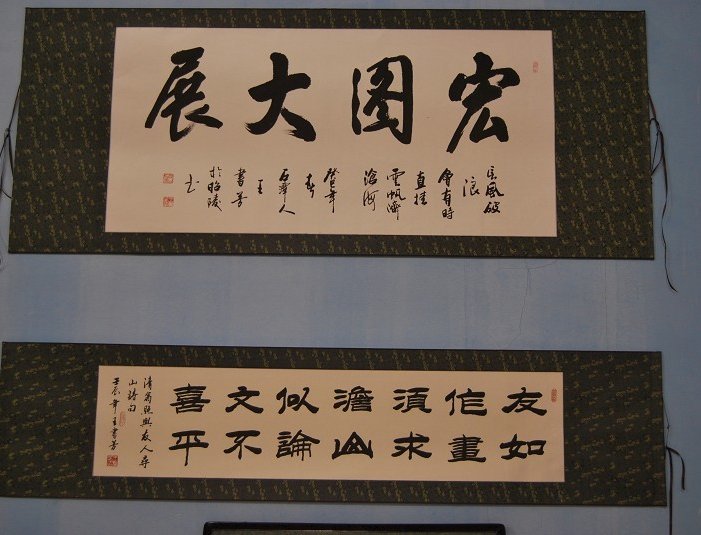 宏图大展
長風破
浪
會有時
直挂
雲帆濟
滄海
癸巳年
春
王
書芳
於昭陵
书
友如
作畫
須求
澹山
似論
文不
喜平
清翁照與友人尋
山詩句
壬辰年王書芳